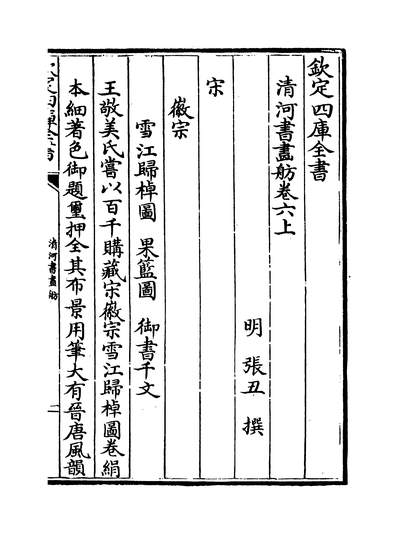 欽定四庫全書
清河書畫舫卷六上
明 張丑 撰
宋
徽宗
雪江歸棹圖 果籃圖 御書千文
王敬美氏嘗以百千購藏宋徽宗雪江歸棹圖卷絹
本細著色御題璽押全其布景用筆大有晉唐風韻
欽定四庫全書
清河書畫舫